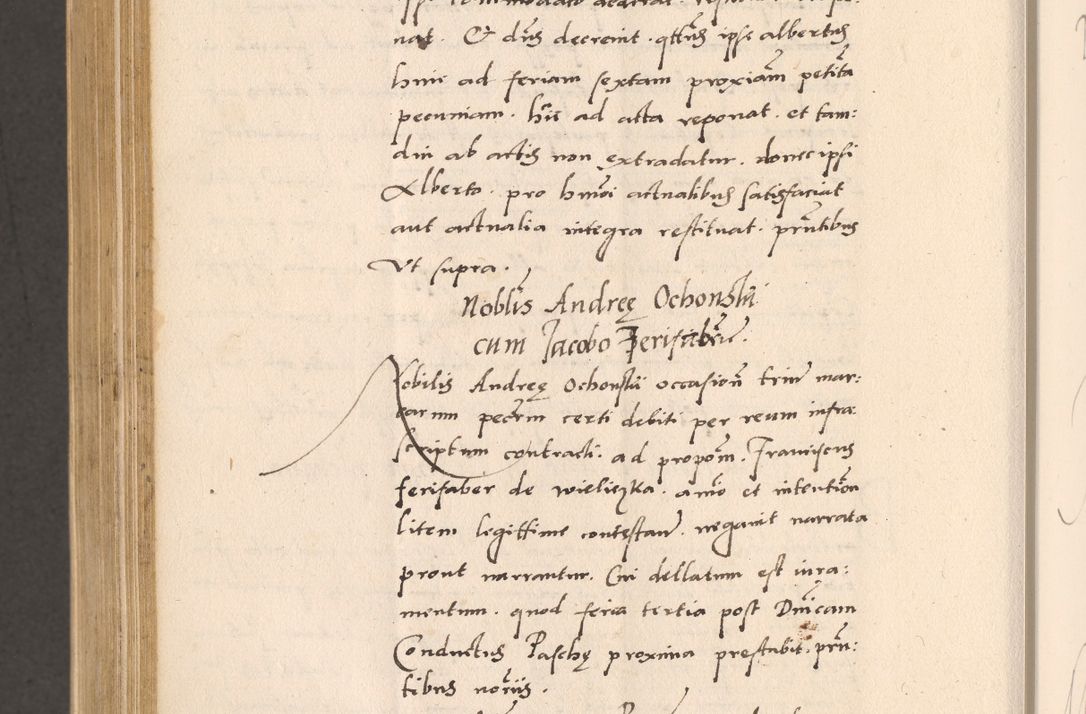 nat. Et dns decrevit. qttus ipse albertus
huic ad feriam sextam proxiam petita
pecuniam. hic ad acta reponat. et tam:
diu ab actis non extradatur. donec ipsi
Alberto. pro hmoi actualibus satisfaciat
aut actualia integra restituat. pntibus
Ut supra.
Noblis Andreę Ochonsky
cum Jacobo Ferifabro.
Nobilis Andreę Ochonsky occasion trium mar:
carum pecrm certi debiti per reum infra:
scriptum contracti. ad propom. Franciscus
ferifaber de wieliczka. animo et intention
litem legittime contestan. negavit narrata
prout narrantur. Cui dellatum est iura:
mentum. quod feria tertia post Dnicam
Conductus Paschę proxima prestabit. prn:
tibus noriis.